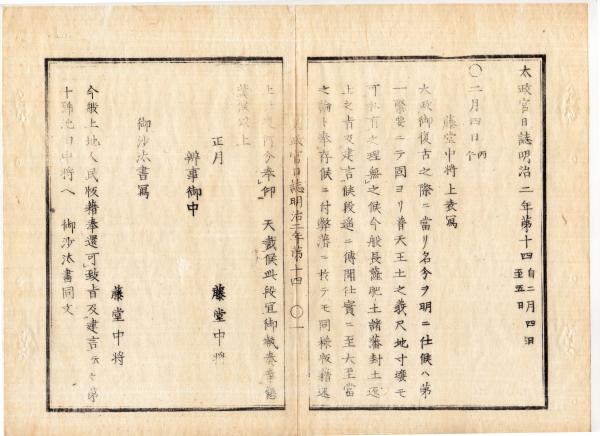 太政官日誌明治二年第十四 自二月四日 至五日
〇二月四日 丙午
藤堂中将上表写
大政御復古之際ニ当リ名分ヲ明ニ仕候ハ第
一緊要ニテ固ヨリ普天王土之義尺地寸壌モ
可私有之理無之候今般長薩肥土諸藩封土返
上之旨及建言候段逓ニ伝聞仕実ニ至大至当
之論ト奉存候ニ付弊藩ニ於テモ同様版籍返
太政官日誌明治二年第十四 〇一
上仕之何分奉仰 天裁候此段宜御執奏奉懇
願候以上
正月
藤堂中将
辨事御中
御沙汰書写
藤堂中将
今般土地人民版籍奉還可致旨及建言云々第
十号池田中将ヘ 御沙汰書同文